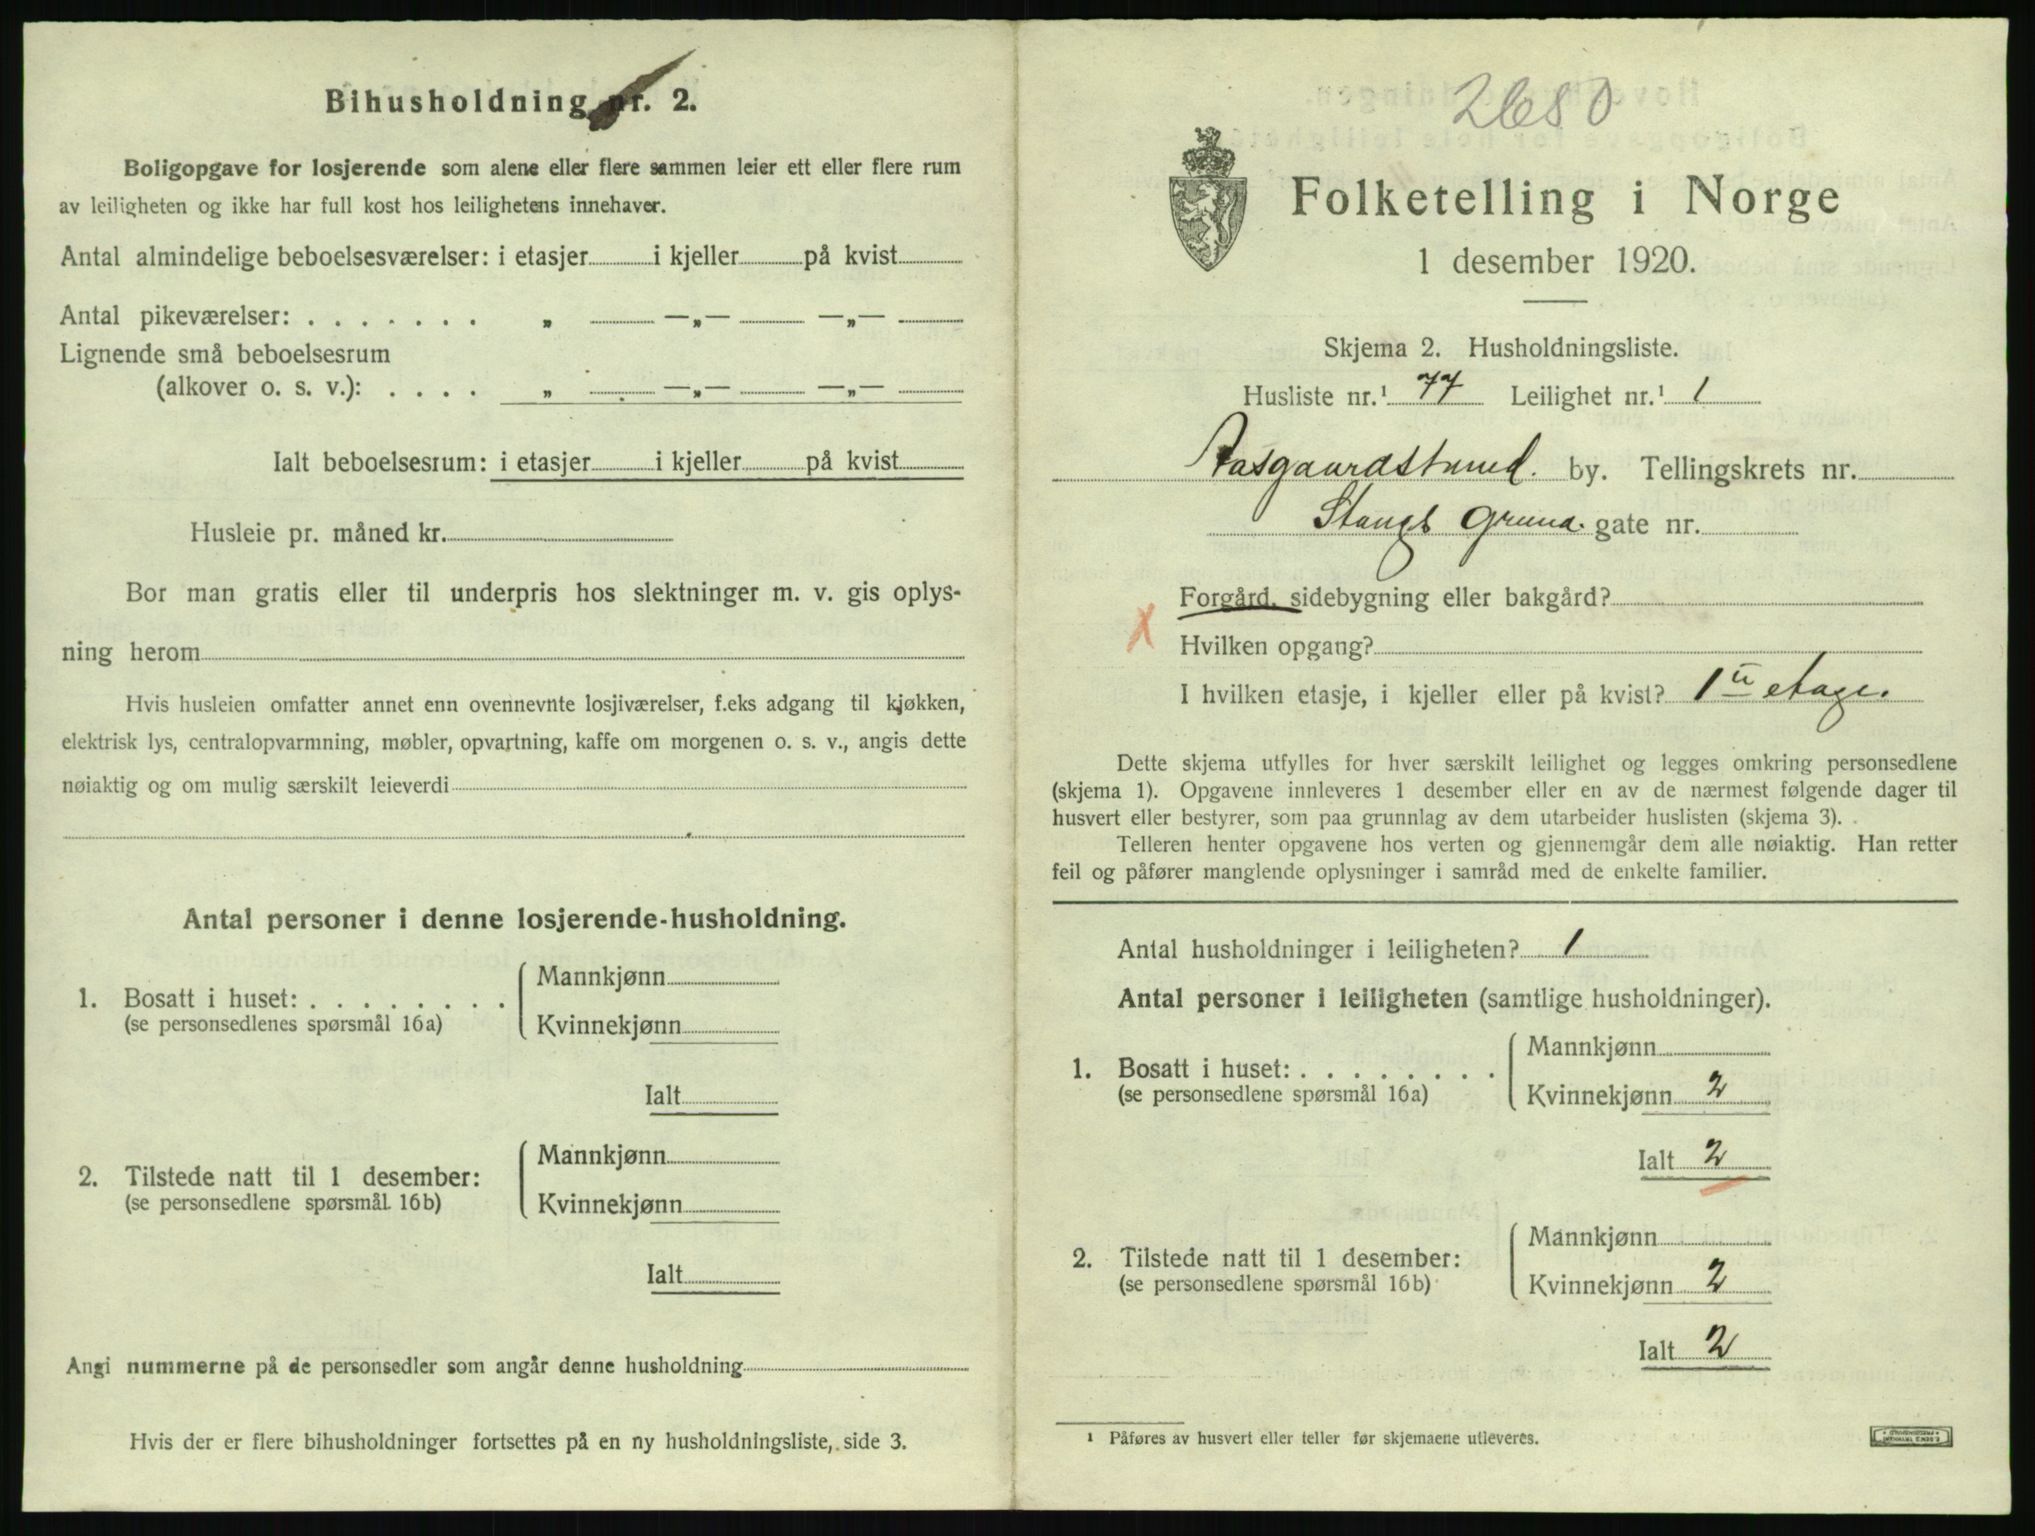 Bihusholdning nr. 2.
Boligopgave for losjerende som alene eller flere sammen leier ett eller flere rum
av leiligheten og ikke har full kost hos leilighetens innehaver.
Antal almindelige beboelsesværelser: i etasjer i kjeller på kvist
Antal pikeværelser: . . . . . . . „ —„— —„—
Lignende små beboelsesrum
(alkover o. s. v.): . . . . „ —„— —„—
Ialt beboelsesrum: i etasjer i kjeller på kvist
Husleie pr. måned kr.
Bor man gratis eller til underpris hos slektninger m. v. gis oplys-
ning herom
Hvis husleien omfatter annet enn ovennevnte losjiværelser, f.eks adgang til kjøkken,
elektrisk lys, centralopvarmning, møbler, opvartning, kaffe om morgenen o. s. v., angis dette
nøiaktig og om mulig særskilt leieverdi
Antal personer i denne losjerende-husholdning.
1. Bosatt i huset: . . . . . . . .
(se personsedlenes spørsmål 16a)
Mannkjønn
Kvinnekjønn
Ialt
2. Tilstede natt til 1 desember:
(se personsedlene spørsmål 16b)
Mannkjønn
Kvinnekjønn
Ialt
Angi nummerne på de personsedler som angår denne husholdning
Hvis der er flere bihusholdninger fortsettes på en ny husholdningsliste, side 3.
2680
Folketelling i Norge
1 desember 1920.
Skjema 2. Husholdningsliste.
Husliste nr.¹ 77 Leilighet nr.¹ 1
Aasgaardstrand. by. Tellingskrets nr.
Stangs Grund. gate nr.
Forgård, sidebygning eller bakgård?
X
Hvilken opgang?
I hvilken etasje, i kjeller eller på kvist? 1ste etage.
Dette skjema utfylles for hver særskilt leilighet og legges omkring personsedlene
(skjema 1). Opgavene innleveres 1 desember eller en av de nærmest følgende dager til
husvert eller bestyrer, som paa grunnlag av dem utarbeider huslisten (skjema 3).
Telleren henter opgavene hos verten og gjennemgår dem alle nøiaktig. Han retter
feil og påfører manglende oplysninger i samråd med de enkelte familier.
Antal husholdninger i leiligheten? 1
Antal personer i leiligheten (samtlige husholdninger).
1. Bosatt i huset: . . . . . . . .
(se personsedlene spørsmål 16a)
Mannkjønn
Kvinnekjønn 2
Ialt 2
2. Tilstede natt til 1 desember:
(se personsedlene spørsmål 16b)
Mannkjønn
Kvinnekjønn 2
Ialt 2
¹ Påføres av husvert eller teller før skjemaene utleveres.